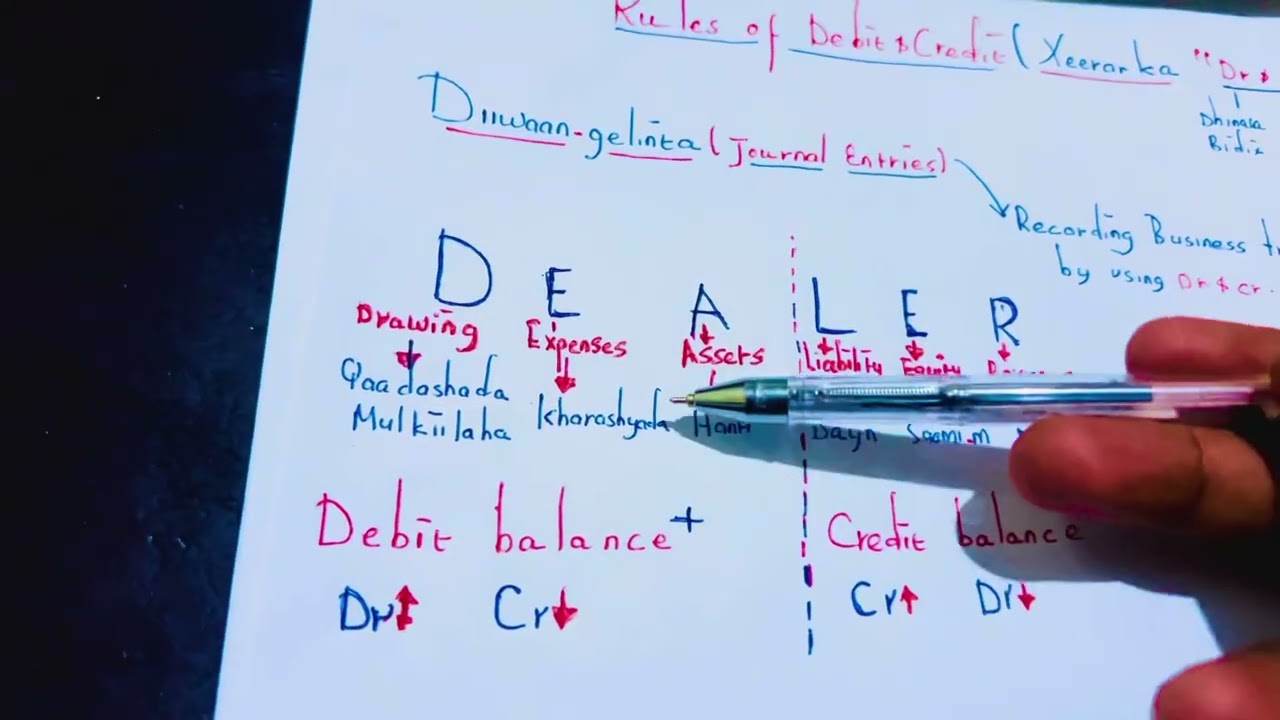 Rules of Debit & Credit (Xeerarka "Dr &
Dhinaca
Bidix
Diiwaan-gelinta (Journal Entries)
Recording Business
by using Dr & Cr.
D E A L E R
Drawing Expenses Assets Liability Equity
Qaadashada
Mulkiilaha Kharashyada Dayn
Debit balance + Credit balance
Dr↑ Cr↓ Cr↑ Dr↓